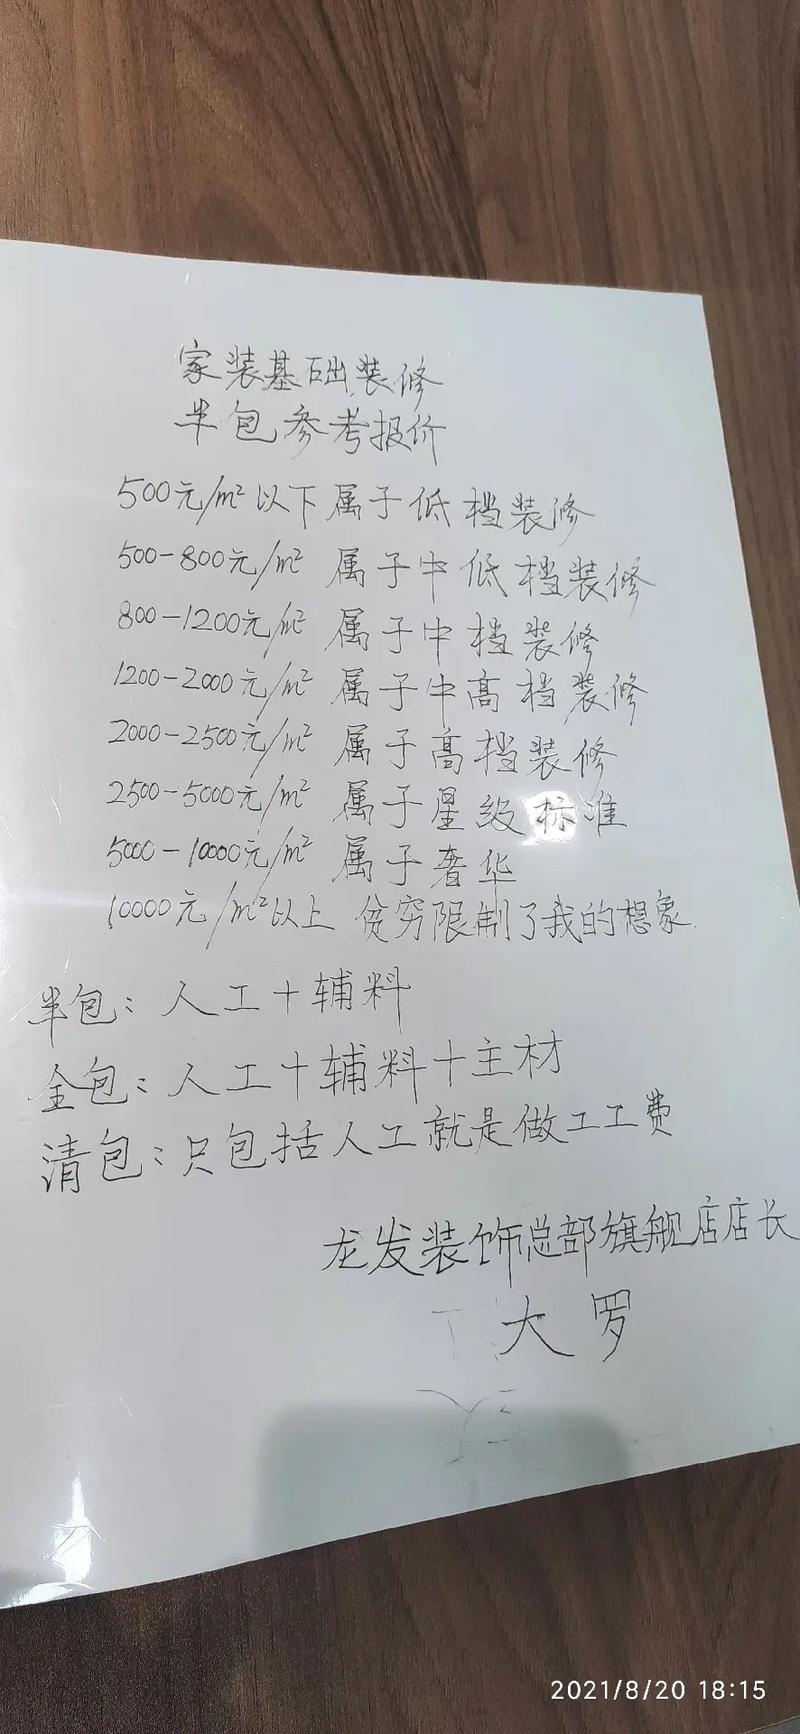 家装基础装修
半包参考报价
500元/m²以下属于低档装修
500-800元/m² 属于中低档装修
800-1200元/m² 属于中档装修
1200-2000元/m² 属于中高档装修
2000-2500元/m² 属于高档装修
2500-5000元/m² 属于星级标准
5000-10000元/m² 属于奢华
10000元/m²以上 贫穷限制了我的想象
半包：人工+辅料
全包：人工+辅料+主材
清包：只包括人工就是做工工费
龙发装饰总部旗舰店店长
大罗
2021/8/20 18:15